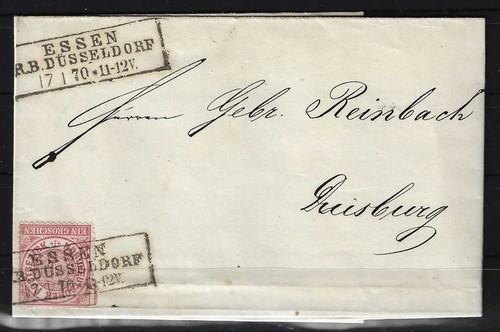 ESSEN
R.B.DÜSSELDORF
17 1 70 * 11-12V.
Herren Gebr. Reinbach
Duisburg
EIN GROSCHEN
ESSEN
R.B.DÜSSELDORF
70 11-12V.